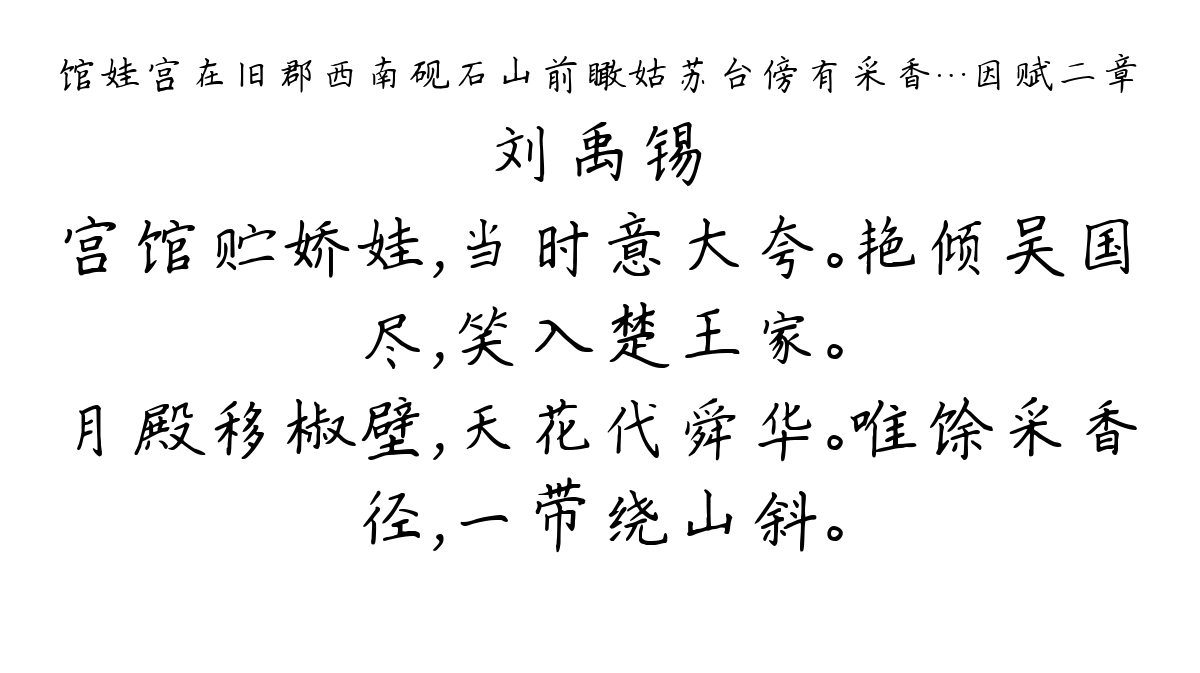 馆娃宫在旧郡西南砚石山前瞰姑苏台傍有采香…因赋二章
刘禹锡
宫馆贮娇娃,当时意大夸。艳倾吴国
尽,笑入楚王家。
月殿移椒壁,天花代舜华。唯馀采香
径,一带绕山斜。